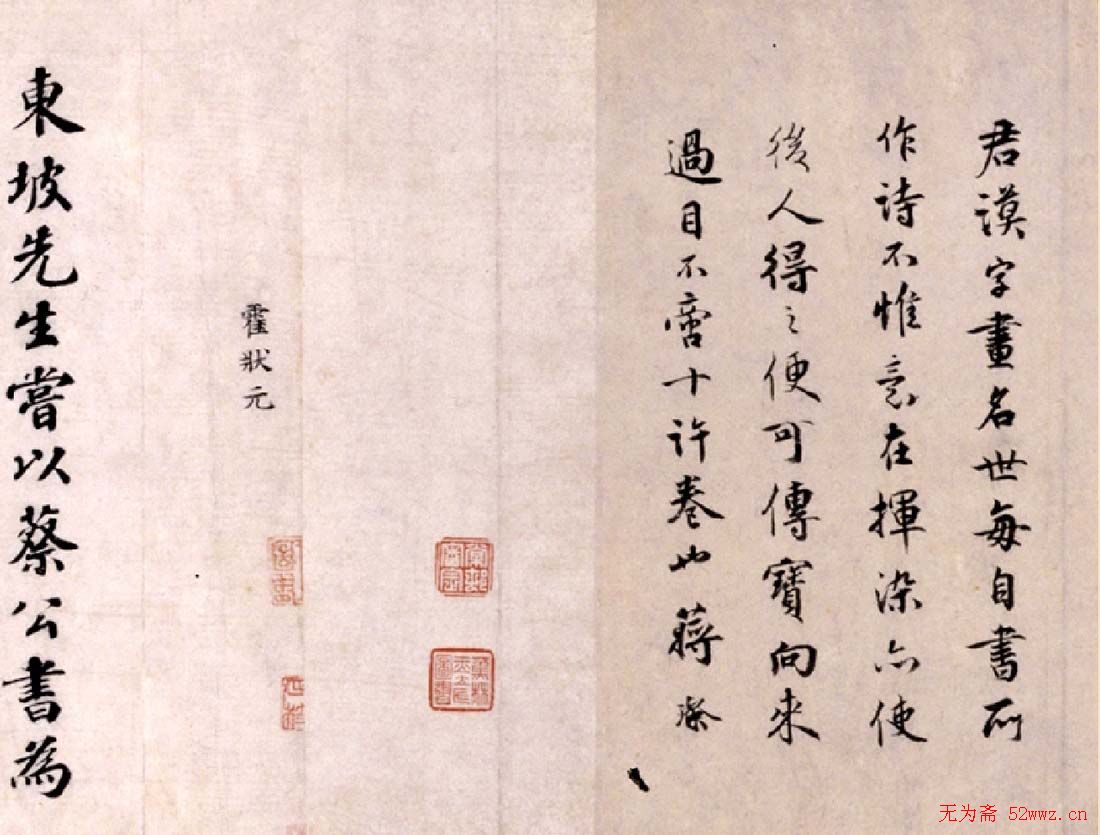 君謨字畫名世每自書所
作詩不惟意在揮染亦使
後人得之便可傳寶向来
過目不啻十許卷也蔣璨
霍狀元
東坡先生嘗以蔡公書為
无为斋 52wwz.cn